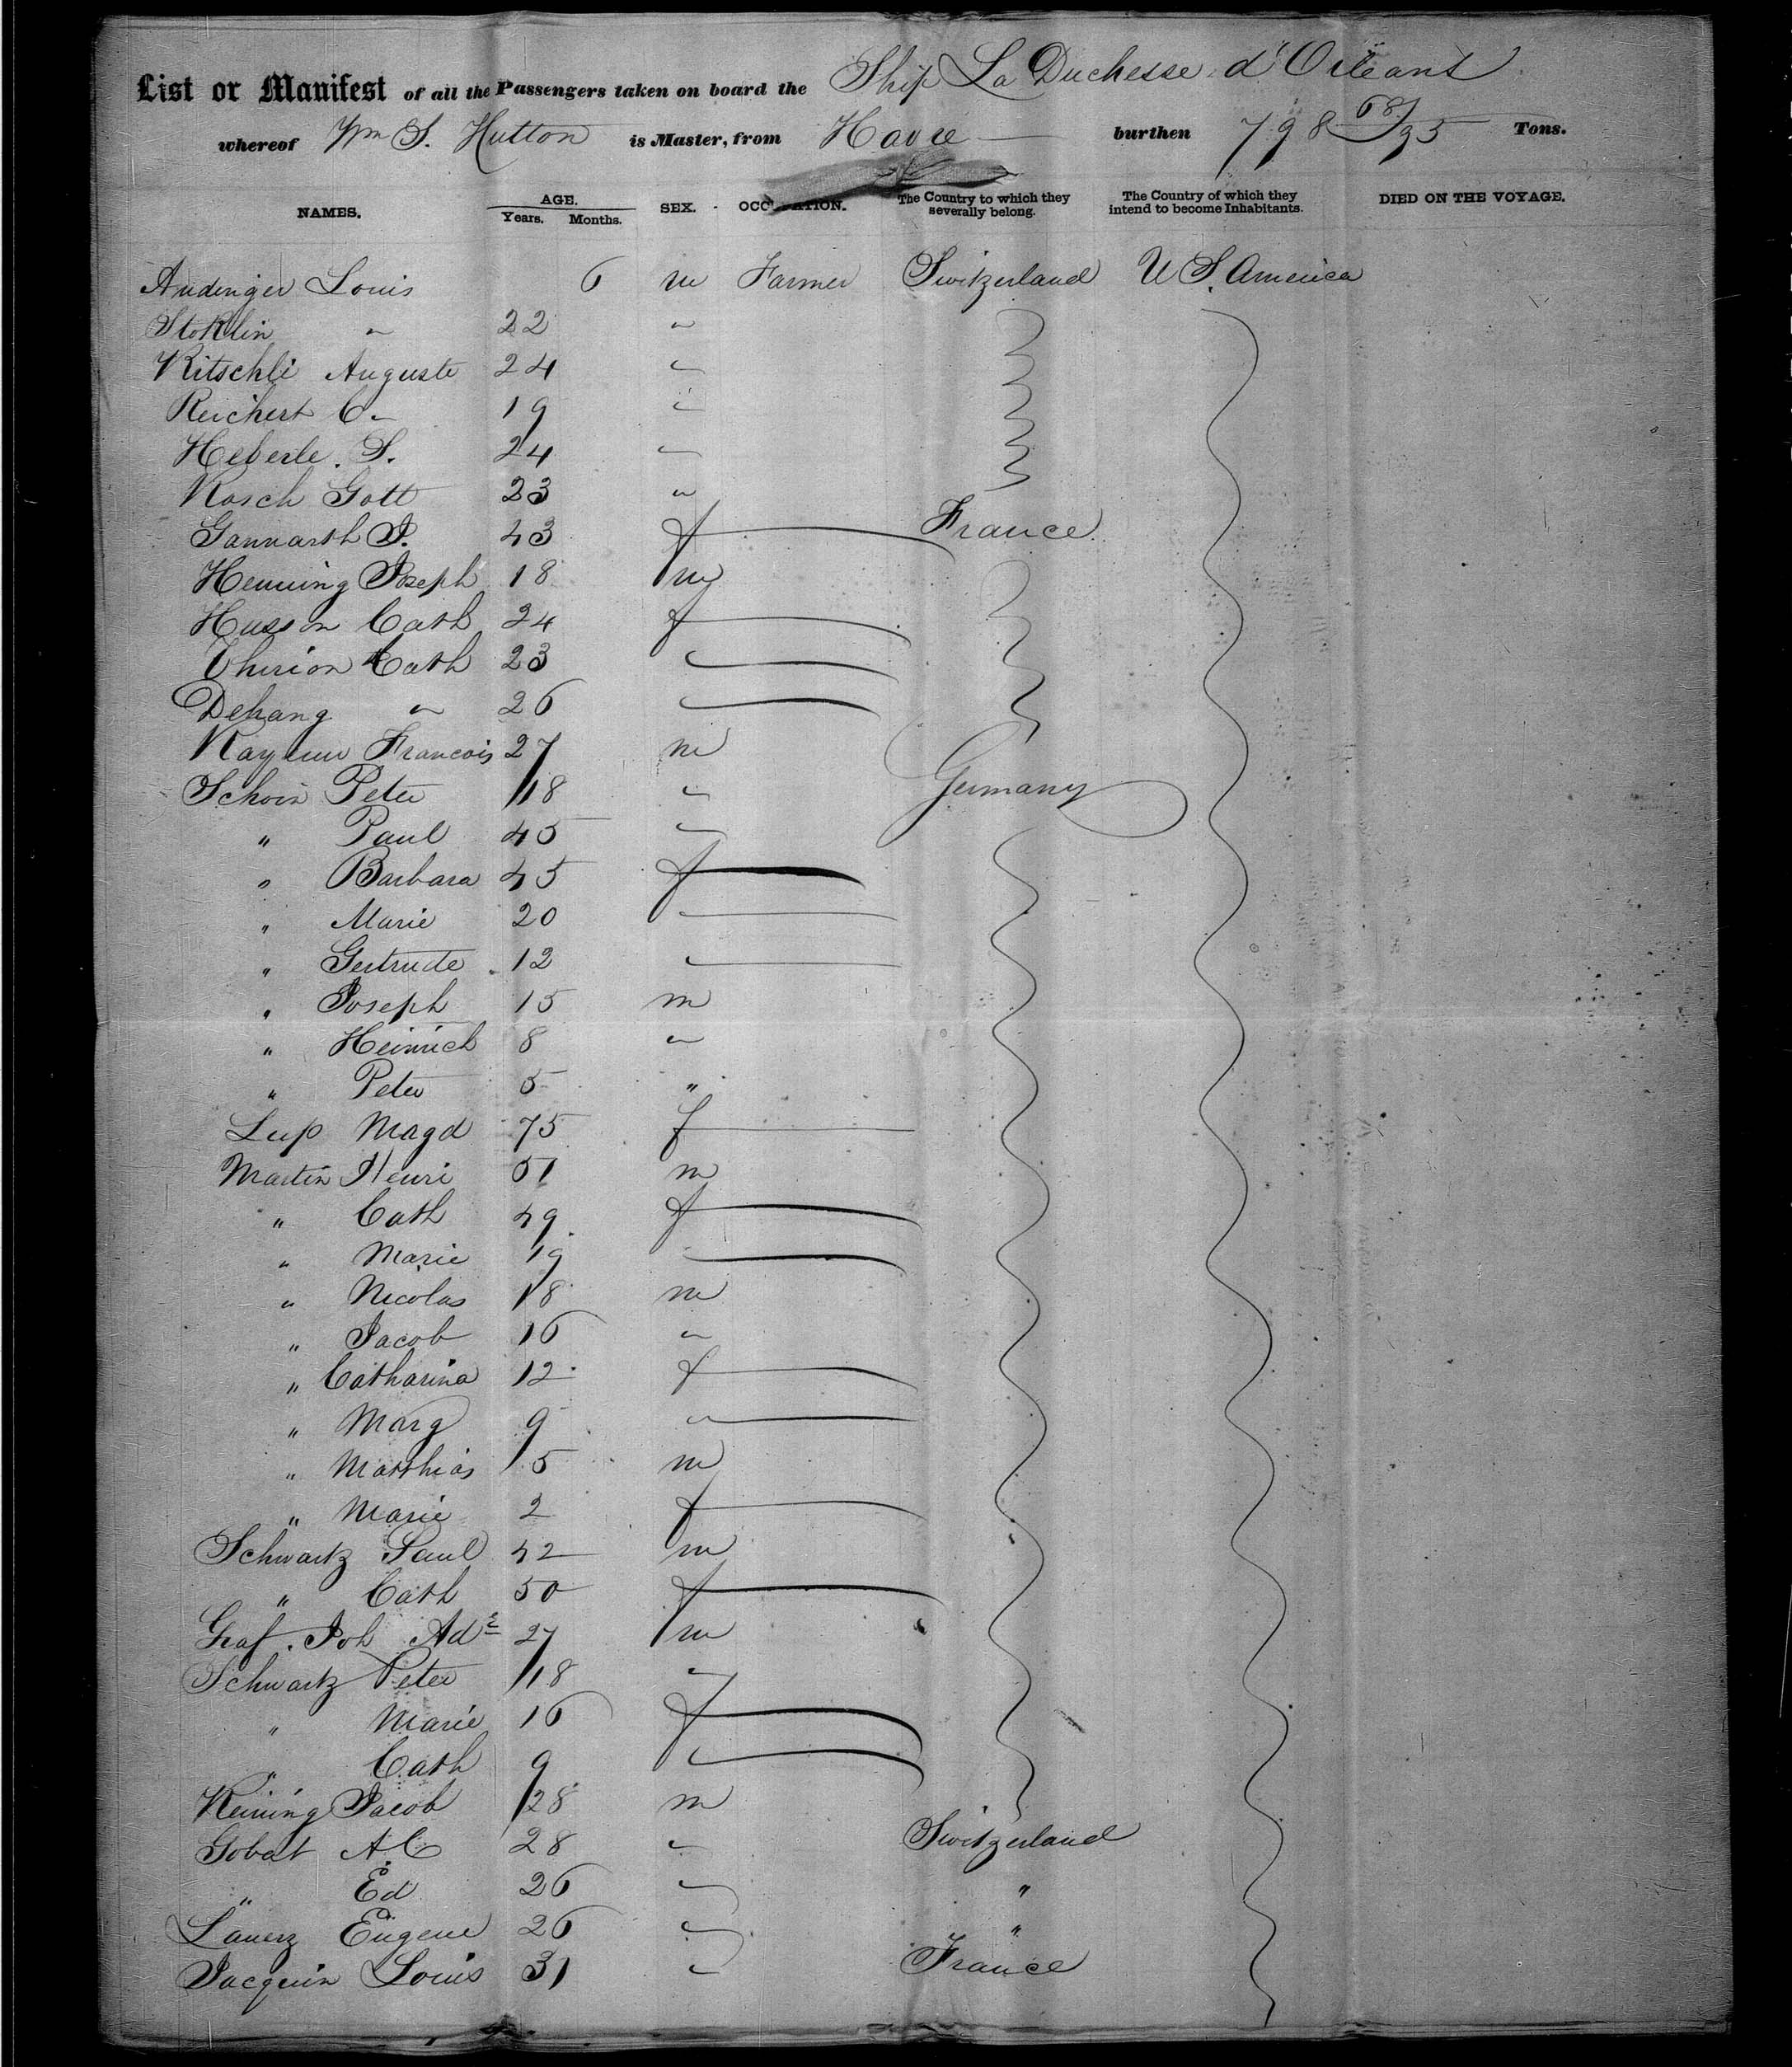 List or Manifest of all the Passengers taken on board the Ship La Duchesse d'Orleans
whereof Wm S. Hutton is Master, from Havre burthen 798 68/95 Tons.
NAMES. AGE. Years. Months. SEX. OCCUPATION. The Country to which they severally belong. The Country of which they intend to become Inhabitants. DIED ON THE VOYAGE.
Andinger Louis 6 m Farmer Switzerland U S. America
Stoklin " 22 "
Kitschli Auguste 24 "
Reichert C. 19 "
Heberle. S. 24 "
Kosch Gott 23 "
Gannarth J. 43 f France
Henning Joseph 18 m
Husson Cath 24 f
Thirion Cath 23 "
Dehang " 26 "
Francois 27 m
Schoin Peter 18 " Germany
" Paul 45 "
" Barbara 45 f
" Marie 20 "
" Gertrude 12 "
" Joseph 15 m
" Heinrich 8 "
" Peter 5 "
Lup Magd 75 f
Martin Henri 51 m
" Cath 49 f
" Marie 19 "
" Nicolas 18 m
" Jacob 16 "
" Catharina 12 f
" Marg 9 "
" Matthias 5 m
" Marie 2 f
Schwartz Paul 42 m
" Cath 50 f
Graf. Joh Ad 27 m
Schwartz Peter 18 "
" Marie 16 f
" Cath 9 "
Keining Jacob 28 m
Gobat A.C 28 " Switzerland
" Ed 26 " "
Lauerz Eugene 26 " "
Jacquin Louis 31 " France